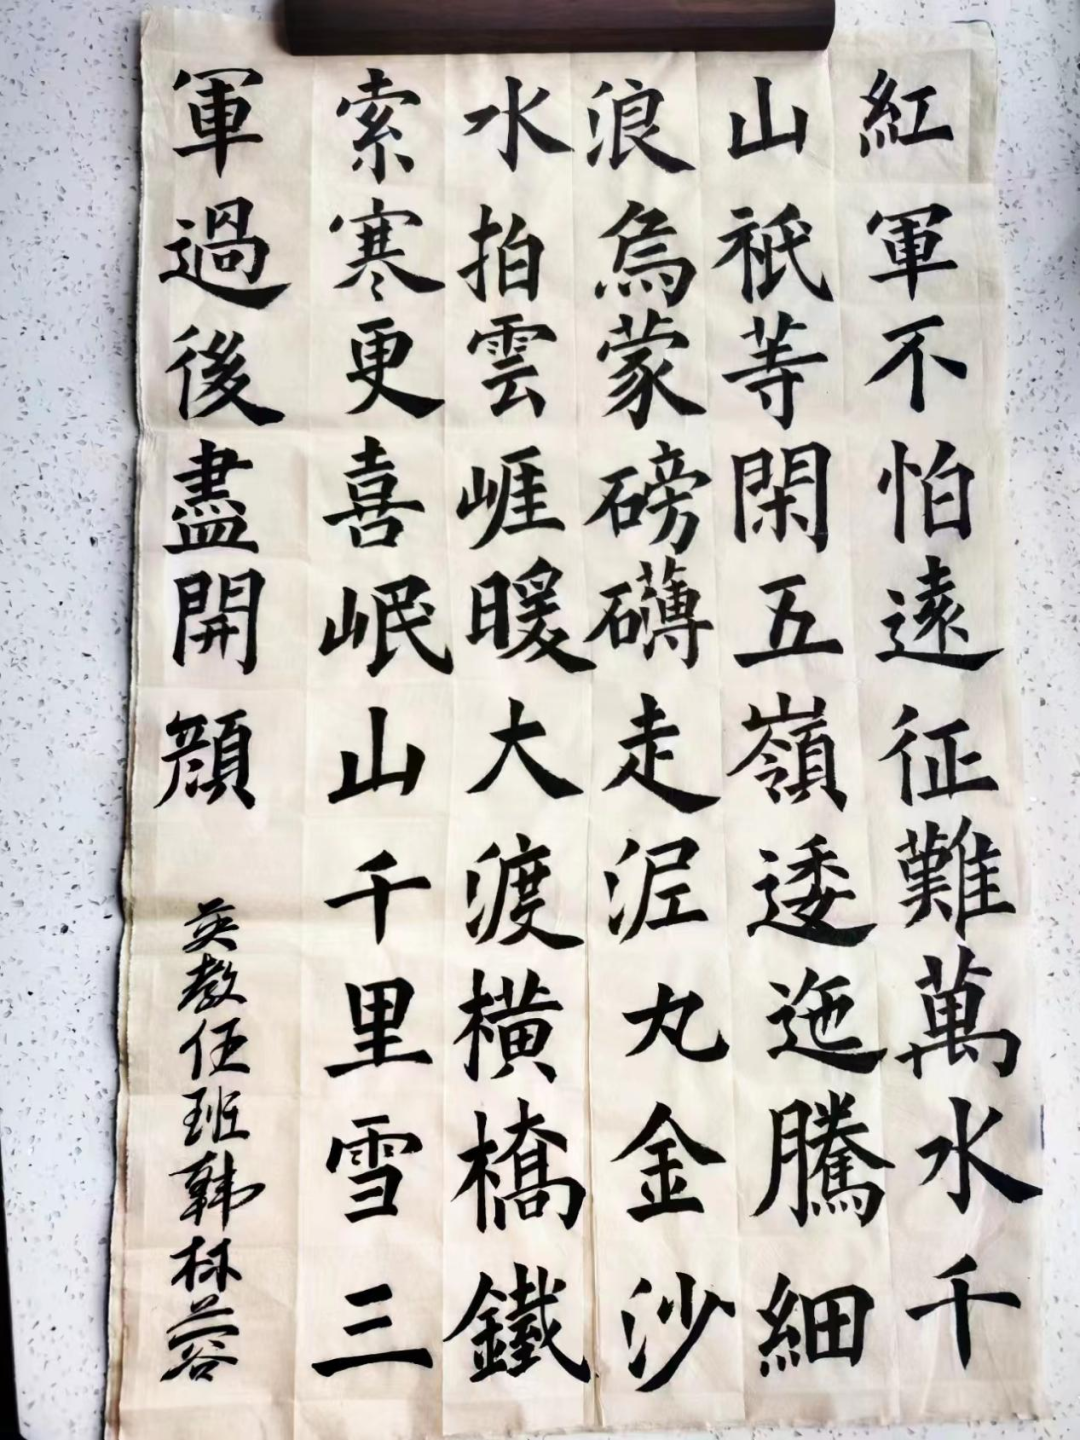 紅軍不怕遠征難萬水千
山祇等閑五嶺逶迤騰細
浪烏蒙磅礴走泥丸金沙
水拍雲崕暖大渡橫橋鐵
索寒更喜岷山千里雪三
軍過後盡開顏
英教伍班韩林蓉